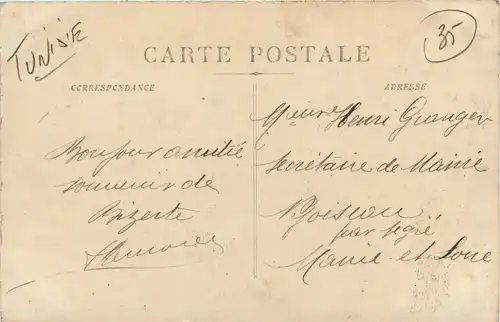 TUNISIE
35
CARTE POSTALE
CORRESPONDANCE
ADRESSE
Bonjour amitié
souvenir de
Bizerte
Mr Henri Granger
Secrétaire de Mairie
par Segré
Maine et Loire